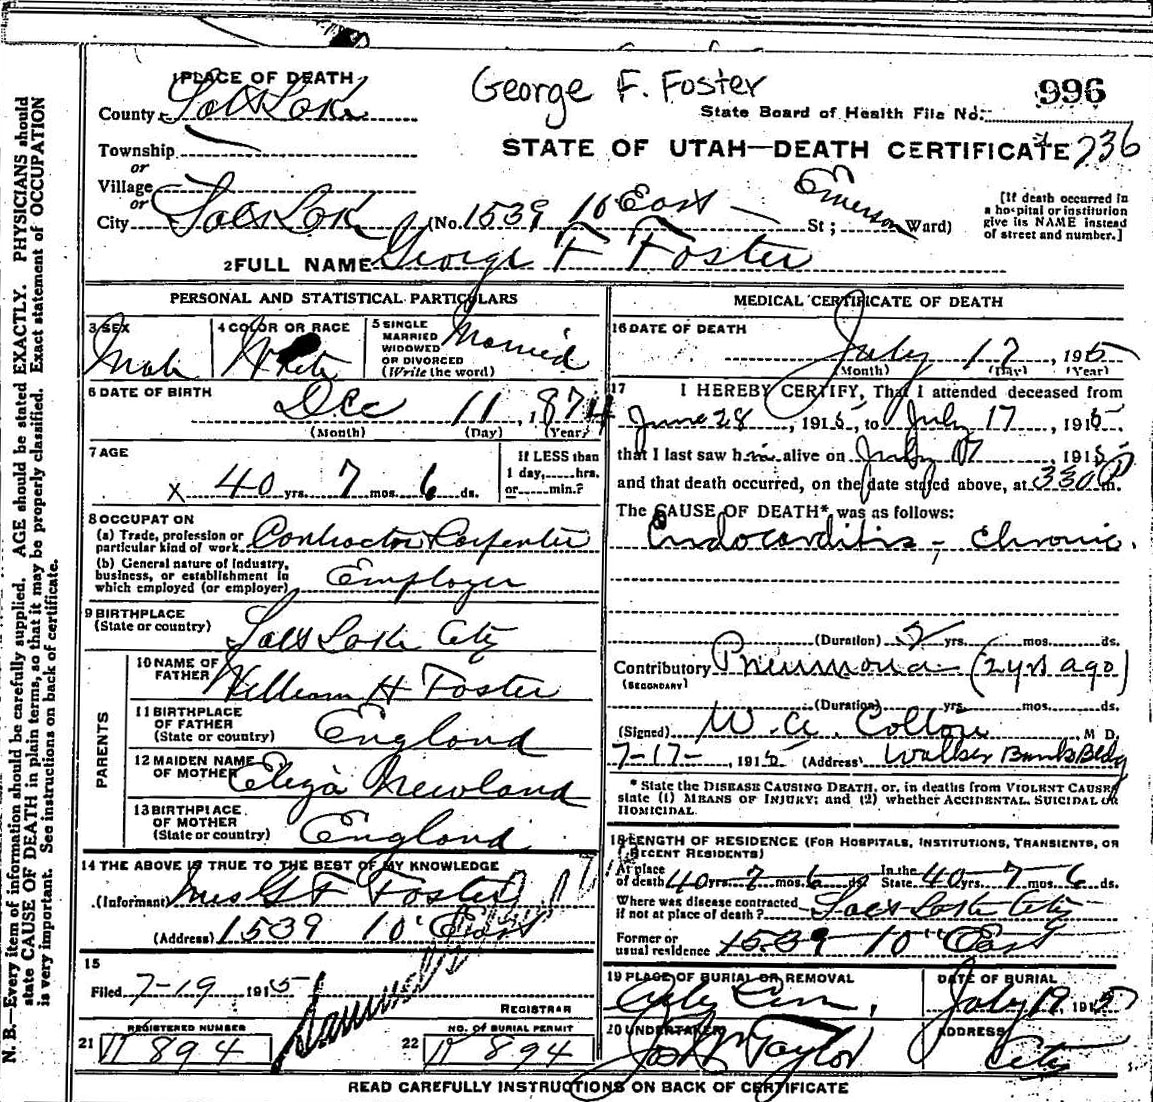 George F. Foster
996
1 PLACE OF DEATH
County Salt Lake
State Board of Health File No.
Township
STATE OF UTAH—DEATH CERTIFICATE 736
or
Village
or
City Salt Lake (No. 1539 10" East St; Emerson Ward)
[If death occurred in a hospital or institution give its NAME instead of street and number.]
2 FULL NAME George F Foster
PERSONAL AND STATISTICAL PARTICULARS
3 SEX Male
4 COLOR OR RACE White
5 SINGLE MARRIED WIDOWED OR DIVORCED (Write the word) Married
6 DATE OF BIRTH
Dec 11, 1874
(Month) (Day) (Year)
7 AGE
x 40 yrs. 7 mos. 6 ds.
If LESS than 1 day,.....hrs. or.....min.?
8 OCCUPATION
(a) Trade, profession or particular kind of work Contractor Carpenter
(b) General nature of industry, business, or establishment in which employed (or employer) Employer
9 BIRTHPLACE
(State or country) Salt Lake City
PARENTS
10 NAME OF FATHER William H Foster
11 BIRTHPLACE OF FATHER (State or country) England
12 MAIDEN NAME OF MOTHER Eliza Newland
13 BIRTHPLACE OF MOTHER (State or country) England
14 THE ABOVE IS TRUE TO THE BEST OF MY KNOWLEDGE
(Informant) Mrs G F Foster
(Address) 1539 10" East
15
Filed 7-19 1915
REGISTRAR
REGISTERED NUMBER
21 894
NO. OF BURIAL PERMIT
22 894
MEDICAL CERTIFICATE OF DEATH
16 DATE OF DEATH
July 17, 1915
(Month) (Day) (Year)
17 I HEREBY CERTIFY, That I attended deceased from
June 28, 1915, to July 17, 1915,
that I last saw him alive on July 17, 1915
and that death occurred, on the date stated above, at 330 P m.
The CAUSE OF DEATH*, was as follows:
Endocarditis - Chronic.
(Duration) yrs. mos. ds.
Contributory Pneumonia (2 yrs ago)
(SECONDARY)
(Duration) yrs. mos. ds.
(Signed) W. A. M D.
7-17- 1915 (Address) Walker Bank Bldg
* State the DISEASE CAUSING DEATH, or, in deaths from VIOLENT CAUSES, state (1) MEANS OF INJURY; and (2) whether ACCIDENTAL, SUICIDAL OR HOMICIDAL.
18 LENGTH OF RESIDENCE (FOR HOSPITALS, INSTITUTIONS, TRANSIENTS, OR RECENT RESIDENTS)
At place of death 40 yrs. 7 mos. 6 ds. In the State 40 yrs. 7 mos. 6 ds.
Where was disease contracted if not at place of death? Salt Lake City
Former or usual residence 1539 10" East
19 PLACE OF BURIAL OR REMOVAL
City Cem,
DATE OF BURIAL
July 19, 1915
20 UNDERTAKER
Jos Wm Taylor
ADDRESS
City
READ CAREFULLY INSTRUCTIONS ON BACK OF CERTIFICATE
N. B.—Every item of information should be carefully supplied. AGE should be stated EXACTLY. PHYSICIANS should
state CAUSE OF DEATH in plain terms, so that it may be properly classified. Exact statement of OCCUPATION
is very important. See instructions on back of certificate.